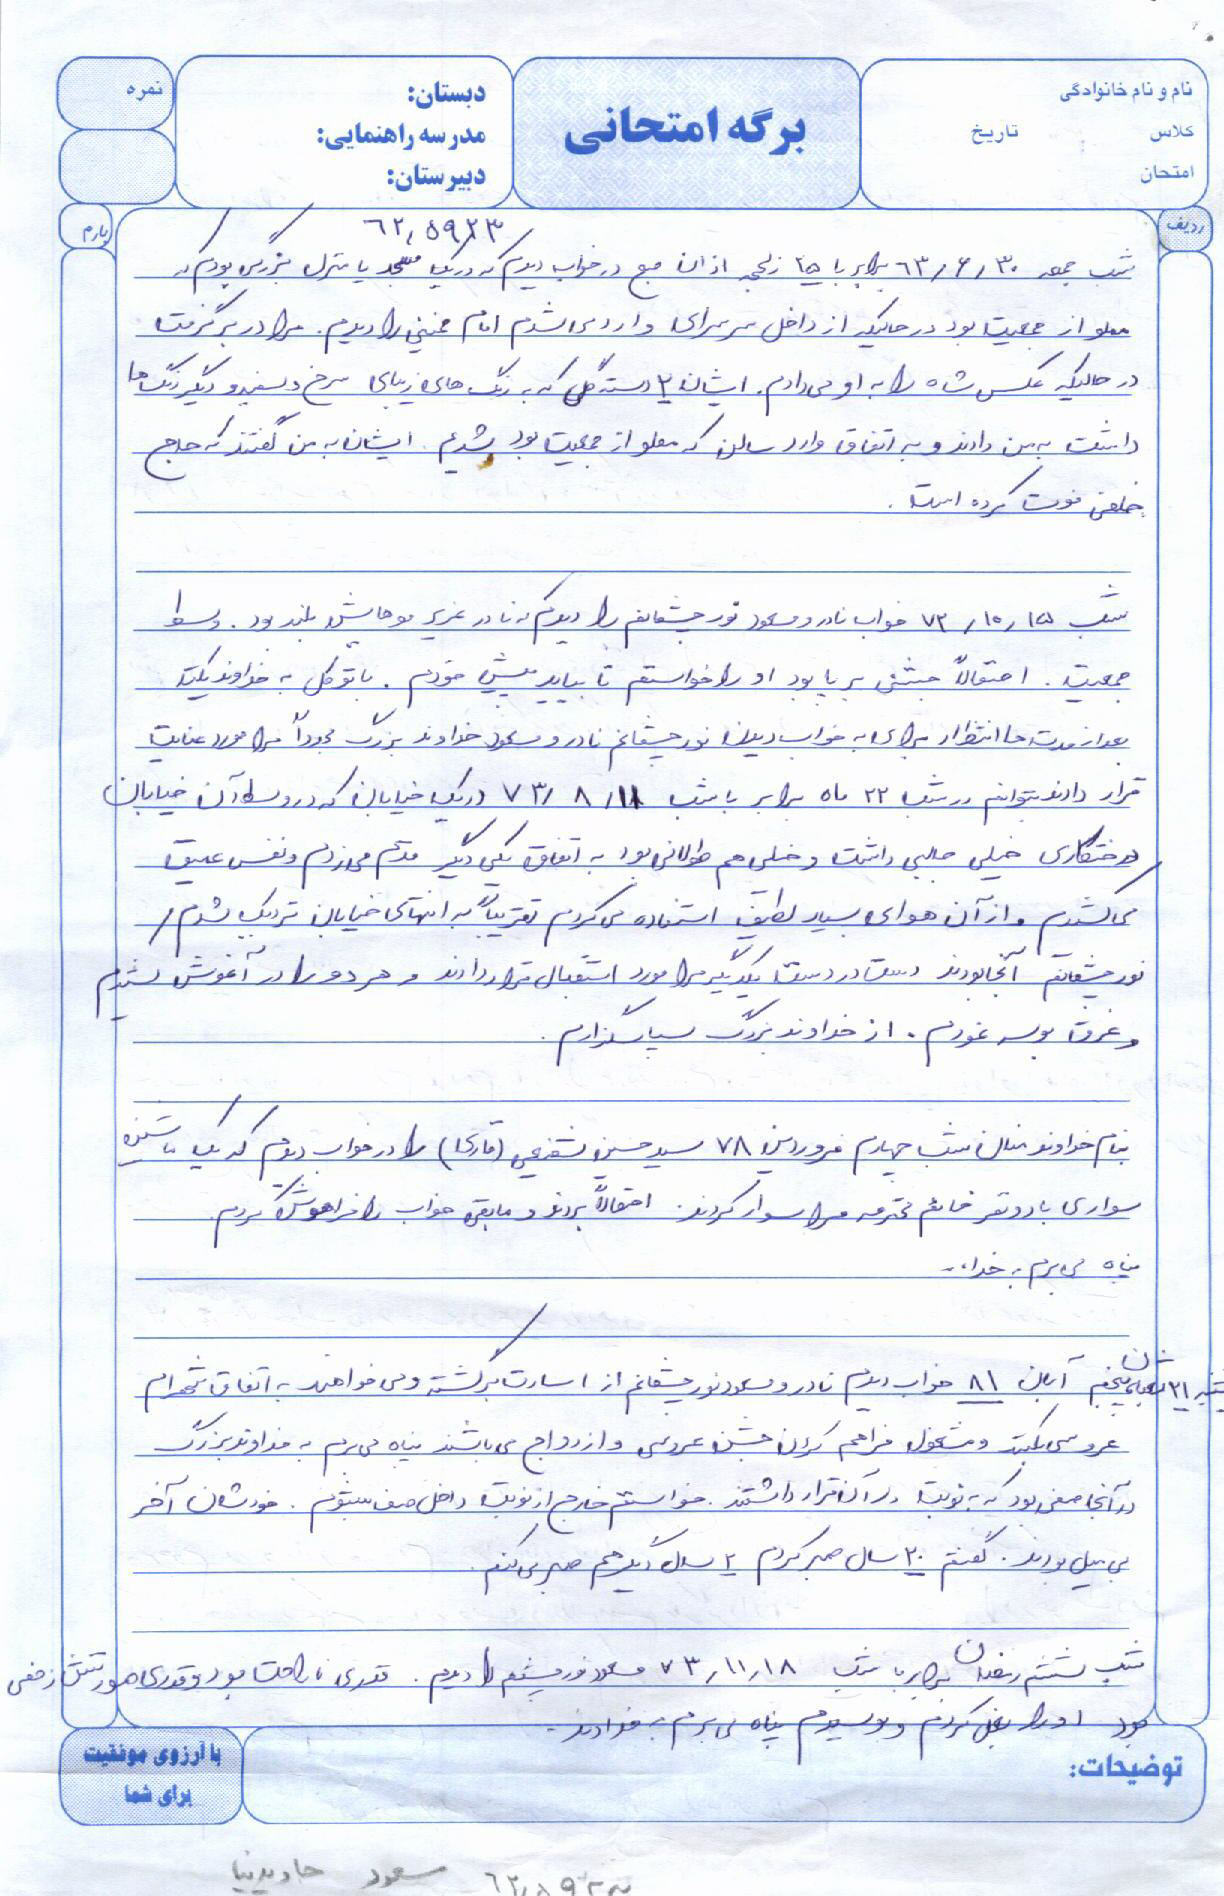 نام و نام خانوادگی
کلاس تاریخ
امتحان
برگه امتحانی
دبستان:
مدرسه راهنمایی:
دبیرستان:
نمره
ردیف
بارم
۶۲٫۵۹۲۳
شب جمعه ۶۳/۶/۳۰ برابر با ۲۵ ذلحجه اذان صبح در خواب دیدم که در یک مسجد یا منزل بزرگی بودم که
مملو از جمعیت بود در حالیکه از داخل سرسرای وارد می‌شدم امام خمینی را دیدم. مرا در بر گرفت
در حالیکه عکس شاه را به او می‌دادم. ایشان ۲ دسته گل که به رنگ های زیبای سرخ و سفید و دیگر رنگ ها
داشت به من دادند و به اتفاق وارد سالن که مملو از جمعیت بود شدیم. ایشان به من گفتند که حاج
فوت کرده است.
شب ۷۲/۱۰/۱۵ خواب نادر و مسعود نور چشمانم را دیدم که نادر عزیز موهایش بلند بود. وسط
جمعیت. احتمالاً جشنی بر پا بود او را خواستم تا بیاید پیش خودم. با توکل به خداوند یکتا
بعد از مدت ها انتظار برای به خواب دیدن نور چشمانم نادر و مسعود خداوند بزرگ مجدداً مرا مورد عنایت
قرار دادند بتوانم در شب ۲۲ ماه برابر با شب ۷۳/۸/۱۱ در یک خیابان که در وسط آن خیابان
درختکاری خیلی جالبی داشت و خیلی هم طولانی بود به اتفاق یکی دیگر قدم می‌زدم و نفس عمیق
می‌کشیدم و از آن هوای بسیار لطیف استفاده می‌کردم تقریباً به انتهای خیابان نزدیک شدم
نور چشمانم آنجا بودند دست در دست یکدیگر مرا مورد استقبال قرار دادند و هر دو را در آغوش کشیدم
و غرق بوسه نمودم. از خداوند بزرگ سپاسگذارم.
بنام خداوند منان شب چهارم فروردین ۷۸ سید حسین را در خواب دیدم که یک ماشین
سواری با دو نفر خانم محترمه مرا سوار کردند. احتمالاً بردند و مابقی خواب را فراموش کردم.
پناه می‌برم به خدا.
پنجم آبان ۸۱ خواب دیدم نادر و مسعود نور چشمانم از اسارت برگشته و می خواهند به اتفاق شهرام
عروسی بکنند و مشغول فراهم کردن جشن عروسی و ازدواج می باشند پناه می‌برم به خداوند بزرگ
در آنجا صفی بود که به نوبت در آن قرار داشتند. خواستم خارج از نوبت داخل صف بشوم. خودشان آخر
بی میل بودند. گفتم ۲۰ سال صبر کردم ۲ سال دیگر هم صبر می‌کنم.
شب ششم رمضان برابر با شب ۷۳/۱۱/۱۸ مسعود نور چشمم را دیدم. قدری ناراحت بود و قدری صورتش زخمی
بود او را بغل کردم و بوسیدم پناه می‌برم به خداوند.
توضیحات:
با آرزوی موفقیت
برای شما
مسعود جاویدنیا